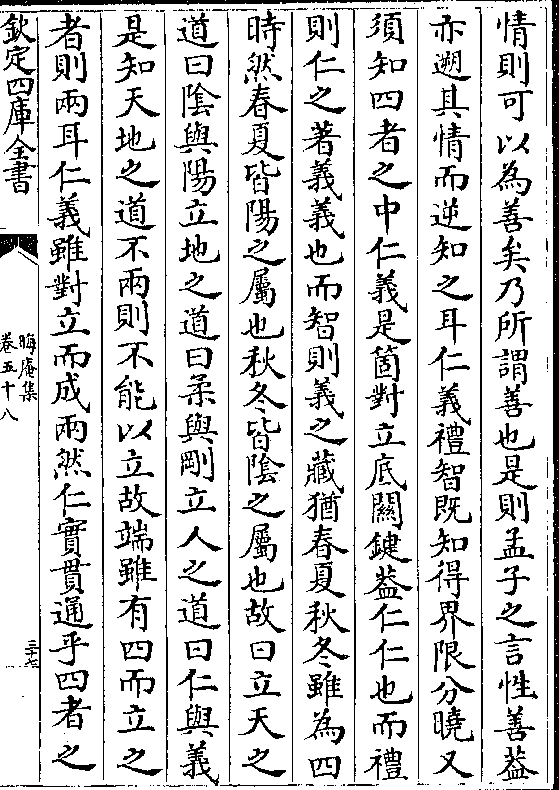 情則可以為善矣乃所謂善也是則孟子之言性善葢
亦遡其情而逆知之耳仁義禮智既知得界限分曉又
須知四者之中仁義是箇對立底關鍵葢仁仁也而禮
則仁之著義義也而智則義之藏猶春夏秋冬雖為四
時然春夏皆陽之屬也秋冬皆陰之屬也故曰立天之
道曰陰與陽立地之道曰柔與剛立人之道曰仁與義
是知天地之道不兩則不能以立故端雖有四而立之
者則兩耳仁義雖對立而成兩然仁實貫通乎四者之
欽定四庫全書
晦庵集
卷五十八
三十七